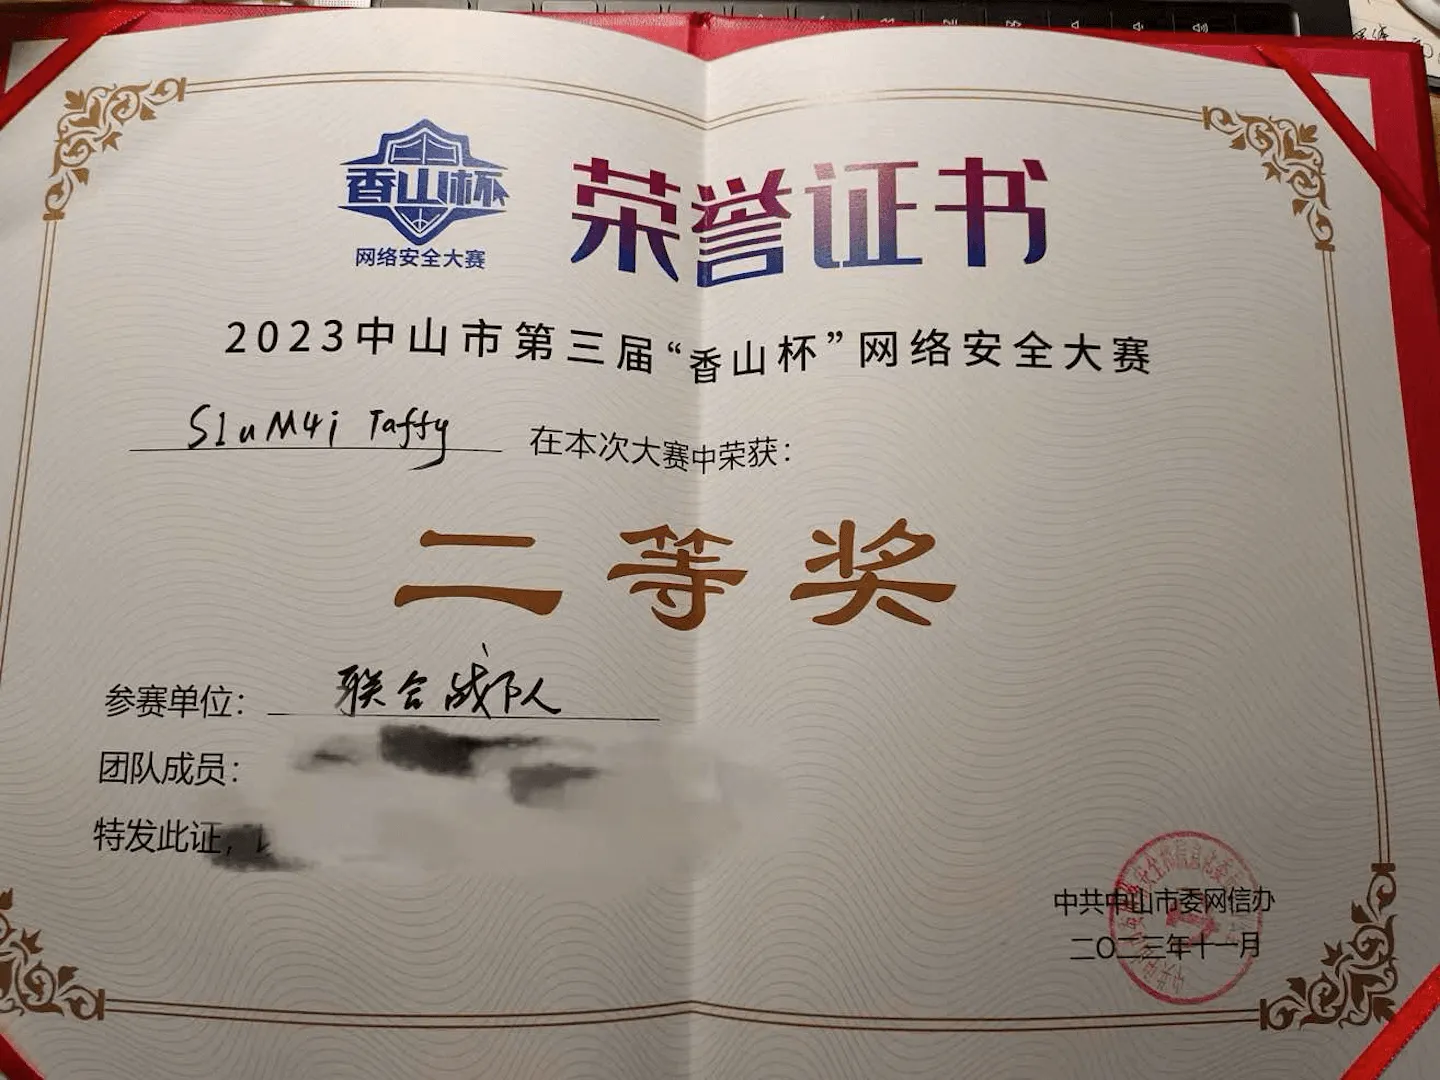 香山杯
网络安全大赛
荣誉证书
2023中山市第三届“香山杯”网络安全大赛
S1uM4i Taffy 在本次大赛中荣获：
二等奖
参赛单位： 联合战队
团队成员：
特发此证，
中共中山市委网信办
二〇二三年十一月